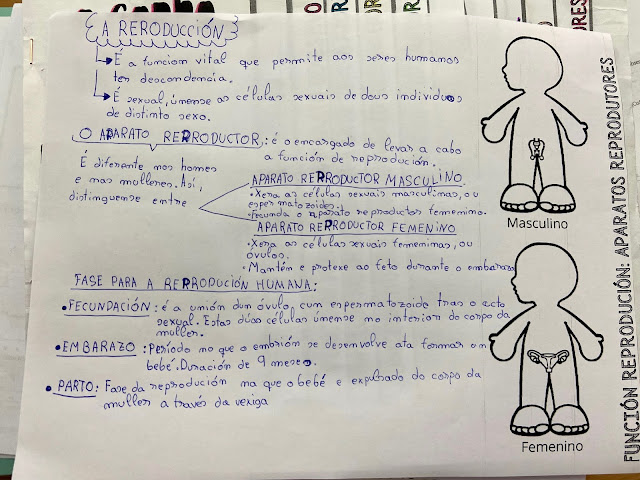 A RERODUCCIÓN
É a funciom vital que permite aos seres humanos
ter descondencia.
É sexual, úmense as células sexuais de dous individuos
de distinto sexo.
O APARATO RERRODUCTOR: é o encargado de levar a cabo
a función de reprodución.
É diferente mos homes
e mas mulleres. Así,
distinguense entre
APARATO RERRODUCTOR MASCULINO
• Xera as células sexuais masculimas, ou
espermatozoides.
• Fecunda o aparato reproductor femenimo.
APARATO RERRODUCTOR FEMENINO
• Xera as células sexuais fememimas, ou
óvulos.
• Mantém e protexe ao feto durante o embarazo
FASE PARA A RERRODUCIÓN HUMANA:
• FECUNDACIÓN: é a umión dum óvulo, cum espermatozoide tras o acto
sexual. Estas dúas células úmense mo interior do corpo da
muller.
• EMBARAZO: Período mo que o embrión se desenvolve ata formar um
bebé. Duración de 9 meses.
• PARTO: Fase da reprodución ma que o bebé e expulsado do corpo da
muller a través da vexiga
Masculino
Femenino
FUNCIÓN REPRODUCIÓN: APARATOS REPRODUTORES